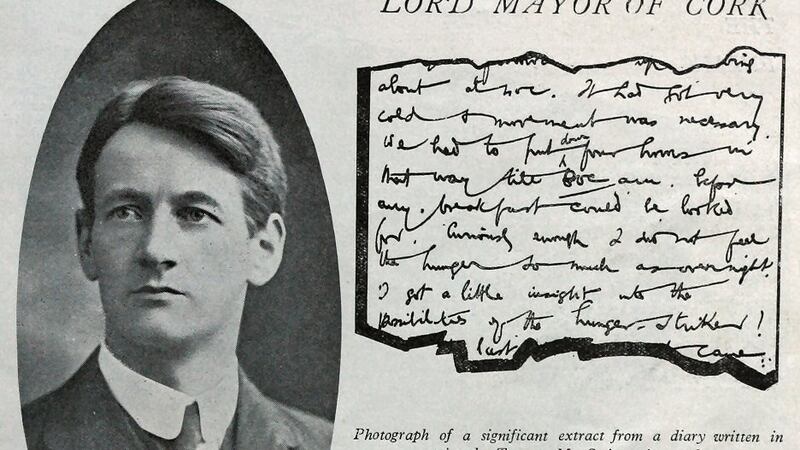 LORD MAYOR OF CORK
about at
about. It had got very
cold & movement was necessary.
We had to put down four hours in
that way till am. before
any breakfast could be looked
for. Curiously enough I did not feel
the hunger so much as overnight.
I got a little insight into the
possibilities of the hunger-striker!
last came
Photograph of a significant extract from a diary written in